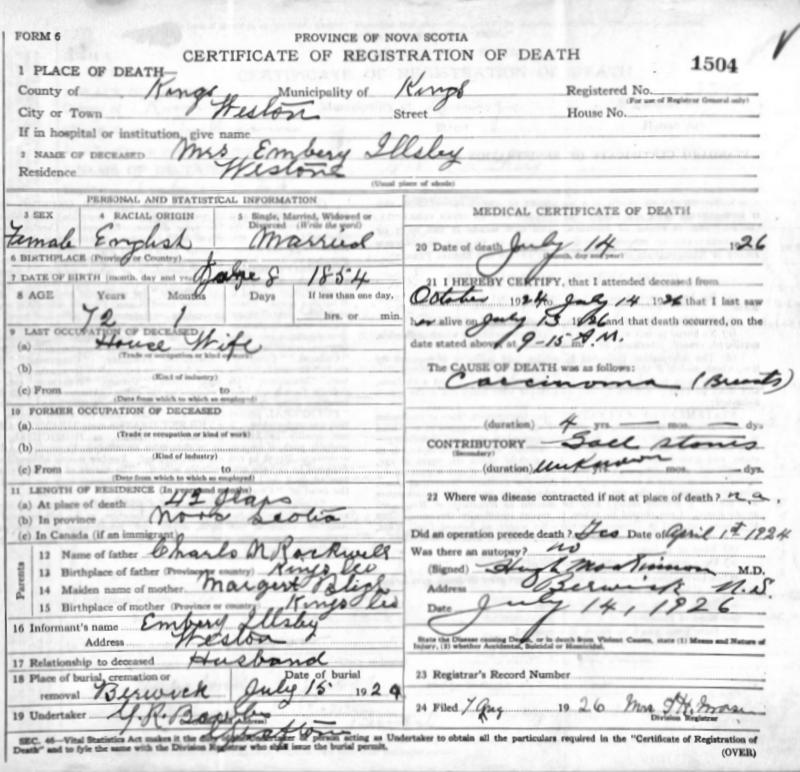 FORM 6
PROVINCE OF NOVA SCOTIA
CERTIFICATE OF REGISTRATION OF DEATH
1504
1 PLACE OF DEATH
County of Kings Municipality of Kings Registered No.
(For use of Registrar General only)
City or Town Weston Street House No.
If in hospital or institution, give name
2 NAME OF DECEASED Mrs Embery Illsley
Residence Westone
(Usual place of abode)
PERSONAL AND STATISTICAL INFORMATION
3 SEX 4 RACIAL ORIGIN 5 Single, Married, Widowed or Divorced (Write the word)
Female English Married
6 BIRTHPLACE (Province or Country)
7 DATE OF BIRTH (month, day and year) 8 1854
8 AGE Years Months Days If less than one day,
72 1 hrs. or min.
9 LAST OCCUPATION OF DECEASED
(a) House Wife
(Trade or occupation or kind of work)
(b)
(Kind of industry)
(c) From to
(Date from which to which so employed)
10 FORMER OCCUPATION OF DECEASED
(a)
(Trade or occupation or kind of work)
(b)
(Kind of industry)
(c) From to
(Date from which to which so employed)
11 LENGTH OF RESIDENCE (In
(a) At place of death 42 years
(b) In province Nova Scotia
(c) In Canada (if an immigrant)
Parents
12 Name of father Charls N Rockwell
13 Birthplace of father (Province or country) Kings Co
14 Maiden name of mother Margert Bligh
15 Birthplace of mother (Province or country) Kings Co
16 Informant's name Embery Illsby
Address Weston
17 Relationship to deceased Husband
18 Place of burial, cremation or removal Berwick Date of burial July 15 192
19 Undertaker
MEDICAL CERTIFICATE OF DEATH
20 Date of death July 14 1926
(Month, day and year)
21 I HEREBY CERTIFY, that I attended deceased from
October 1924 to July 14 1926 that I last saw
her alive on July 13 1926 and that death occurred, on the
date stated above at 9-15 A.M.
The CAUSE OF DEATH was as follows:
Carcinoma (Breasts)
(duration) 4 yrs. — mos. — dys.
CONTRIBUTORY Gall stones
(Secondary)
(duration) unknown mos. dys.
22 Where was disease contracted if not at place of death? n.a.
Did an operation precede death? Yes Date of April 1st 1924
Was there an autopsy? no
(Signed) Hugh MacKinnon M.D.
Address Berwick N.S.
Date July 14, 1926
State the Disease causing Death, or in death from Violent Causes, state (1) Means and Nature of
Injury, (2) whether Accidental, Suicidal or Homicidal.
23 Registrar's Record Number
24 Filed 7 Aug 1926 Mrs
Division Registrar
SEC. 46—Vital Statistics Act makes it the duty of the Undertaker or person acting as Undertaker to obtain all the particulars required in the "Certificate of Registration of
Death" and to fyle the same with the Division Registrar who shall issue the burial permit.
(OVER)